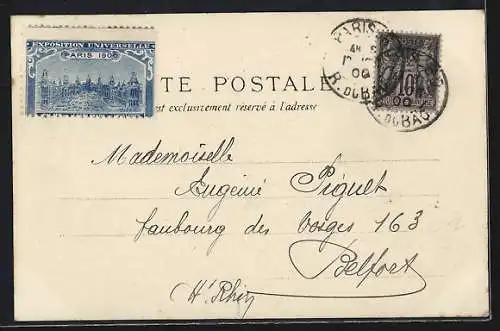 EXPOSITION UNIVERSELLE
PARIS 1900
TE POSTALE
est exclusivement réservé à l'adresse
PARIS
00
R. DU BAC
10
00
DU BAC
Mademoiselle
Eugénie Piguet
faubourg des Vosges 163
Belfort
Ht Rhin